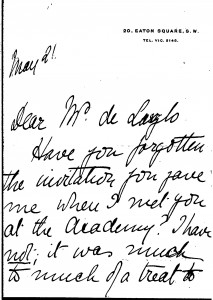 20, EATON SQUARE, S.W.
TEL. VIC. 2145.
May 21.
Dear Mr. de Laszlo
Have you forgotten
the invitation you gave
me when I met you
at the Academy? I have
not; it was much
to much of a treat to